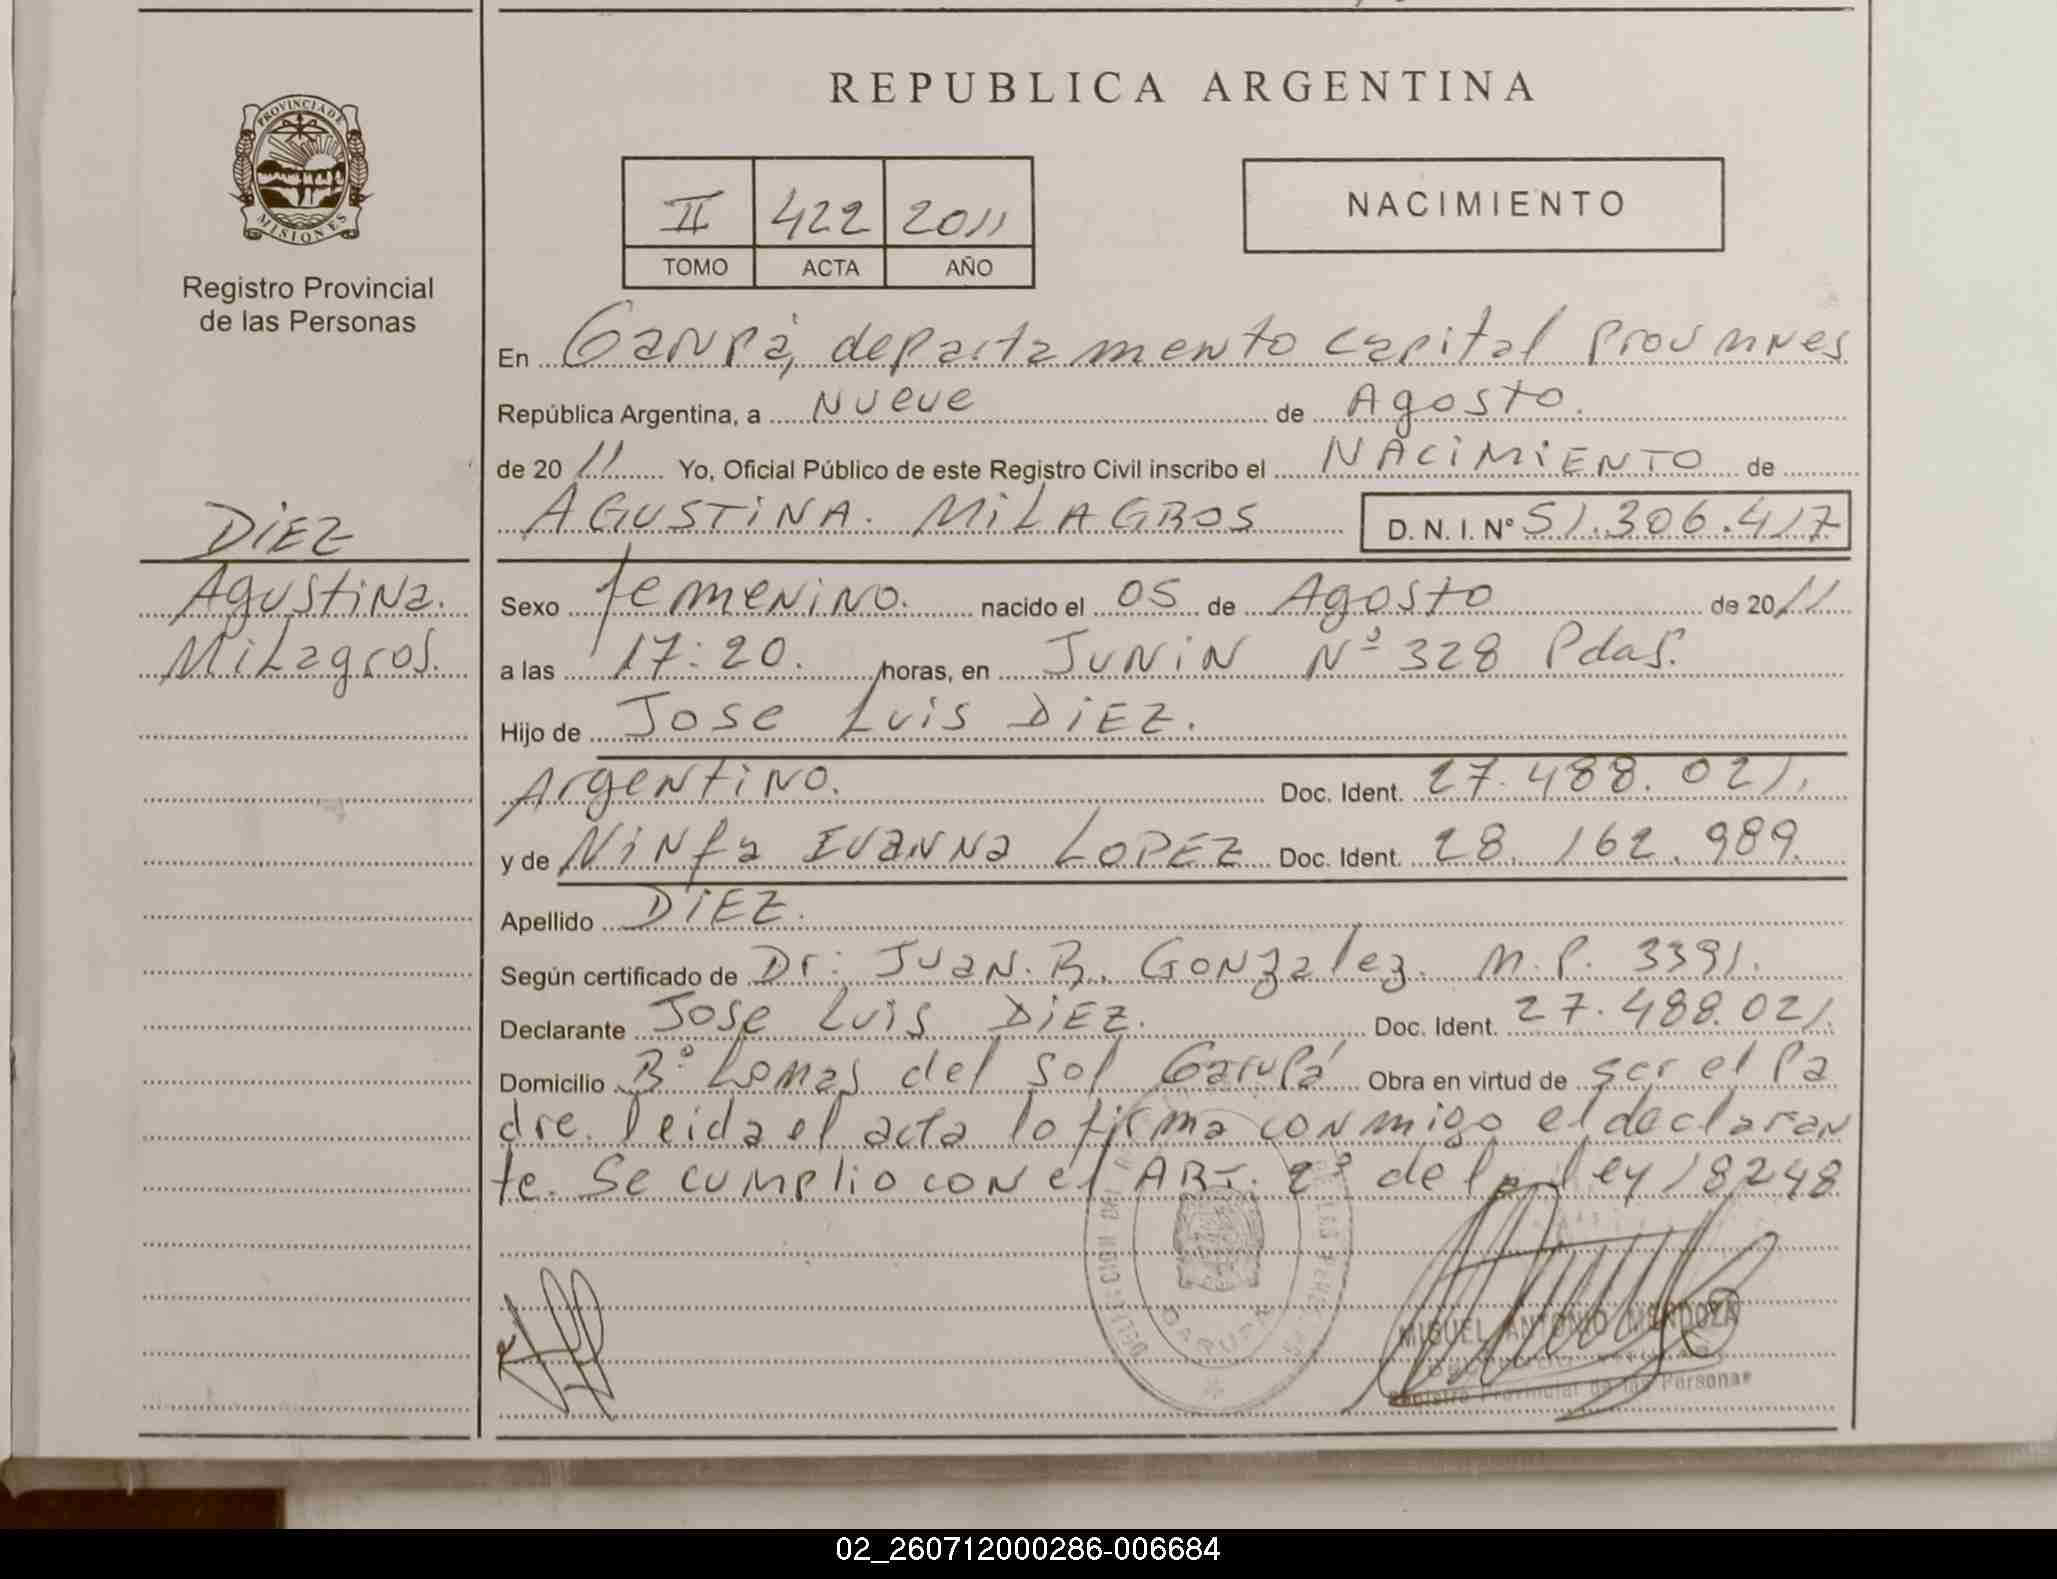 REPUBLICA ARGENTINA
PROVINCIA DE
MISIONES
Registro Provincial
de las Personas
II 422 2011
TOMO ACTA AÑO
NACIMIENTO
En Garupá, departamento capital Prov Mnes
República Argentina, a Nueve de Agosto.
de 2011 Yo, Oficial Público de este Registro Civil inscribo el NACIMIENTO de
AGUSTINA. MILAGROS D. N. I. Nº 51.306.417
DIEZ
Agustina.
Milagros.
Sexo femenino. nacido el 05 de Agosto de 2011
a las 17:20. horas, en JUNIN Nº 328 Pdas.
Hijo de Jose Luis DIEZ.
Argentino. Doc. Ident. 27.488.021.
y de Ninfa Ivanna LOPEZ Doc. Ident. 28.162.989.
Apellido DIEZ.
Según certificado de Dr: Juan. R. Gonzalez. M.P. 3391.
Declarante Jose Luis DIEZ. Doc. Ident. 27.488.021.
Domicilio Bº Lomas del Sol Garupá Obra en virtud de ser el Pa
dre. leida el acta lo firma conmigo el declaran
te. Se cumplio con el ART. 2º de la ley 18248
GARUPA
MIGUEL ANTONIO MENDOZA
Registro Provincial de las Personas
02_260712000286-006684